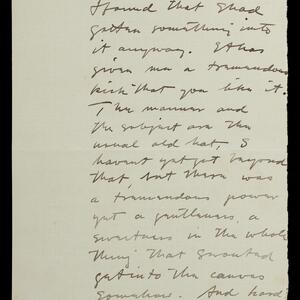 I found that I had
gotten something into
it anyway. It has
given me a tremendous
kick that you like it.
The manner and
the subject are the
usual old hat, I
havent yet got beyond
that, but there was
a tremendous power
yet a gentleness, a
sweetness in the whole
thing that I wanted
get into the canvas
somehow. And